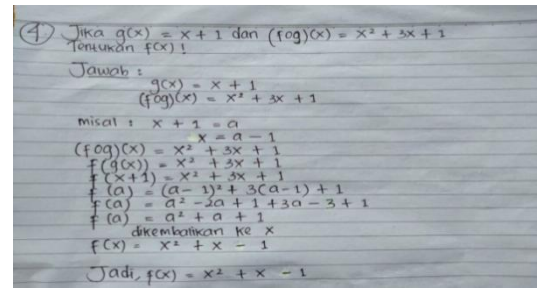 4 Jika g(x) = x + 1 dan (fog)(x) = x² + 3x + 1
Tentukan f(x) !
Jawab :
g(x) = x + 1
(fog)(x) = x² + 3x + 1
misal : x + 1 = a
x = a - 1
(fog)(x) = x² + 3x + 1
f(g(x)) = x² + 3x + 1
f(x+1) = x² + 3x + 1
f(a) = (a - 1)² + 3(a-1) + 1
f(a) = a² - 2a + 1 + 3a - 3 + 1
f(a) = a² + a + 1
dikembalikan ke x
f(x) = x² + x - 1
Jadi, f(x) = x² + x - 1